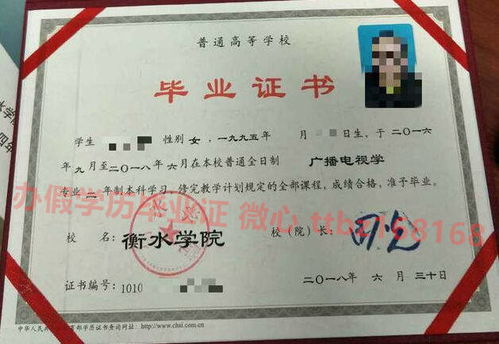 普通高等学校
毕业证书
学生 性别 女，一九九五年 月 日生，于二〇一六
年九月至二〇一八年六月在本校普通全日制 广播电视学
专业 二年制本科学习，修完教学计划规定的全部课程，成绩合格，准予毕业。
办假学历毕业证 微心
校 名： 衡水学院 校（院）长：
二〇一八年 六月 三十日
证书编号：1010
查询网址：http://www.chsi.com.cn